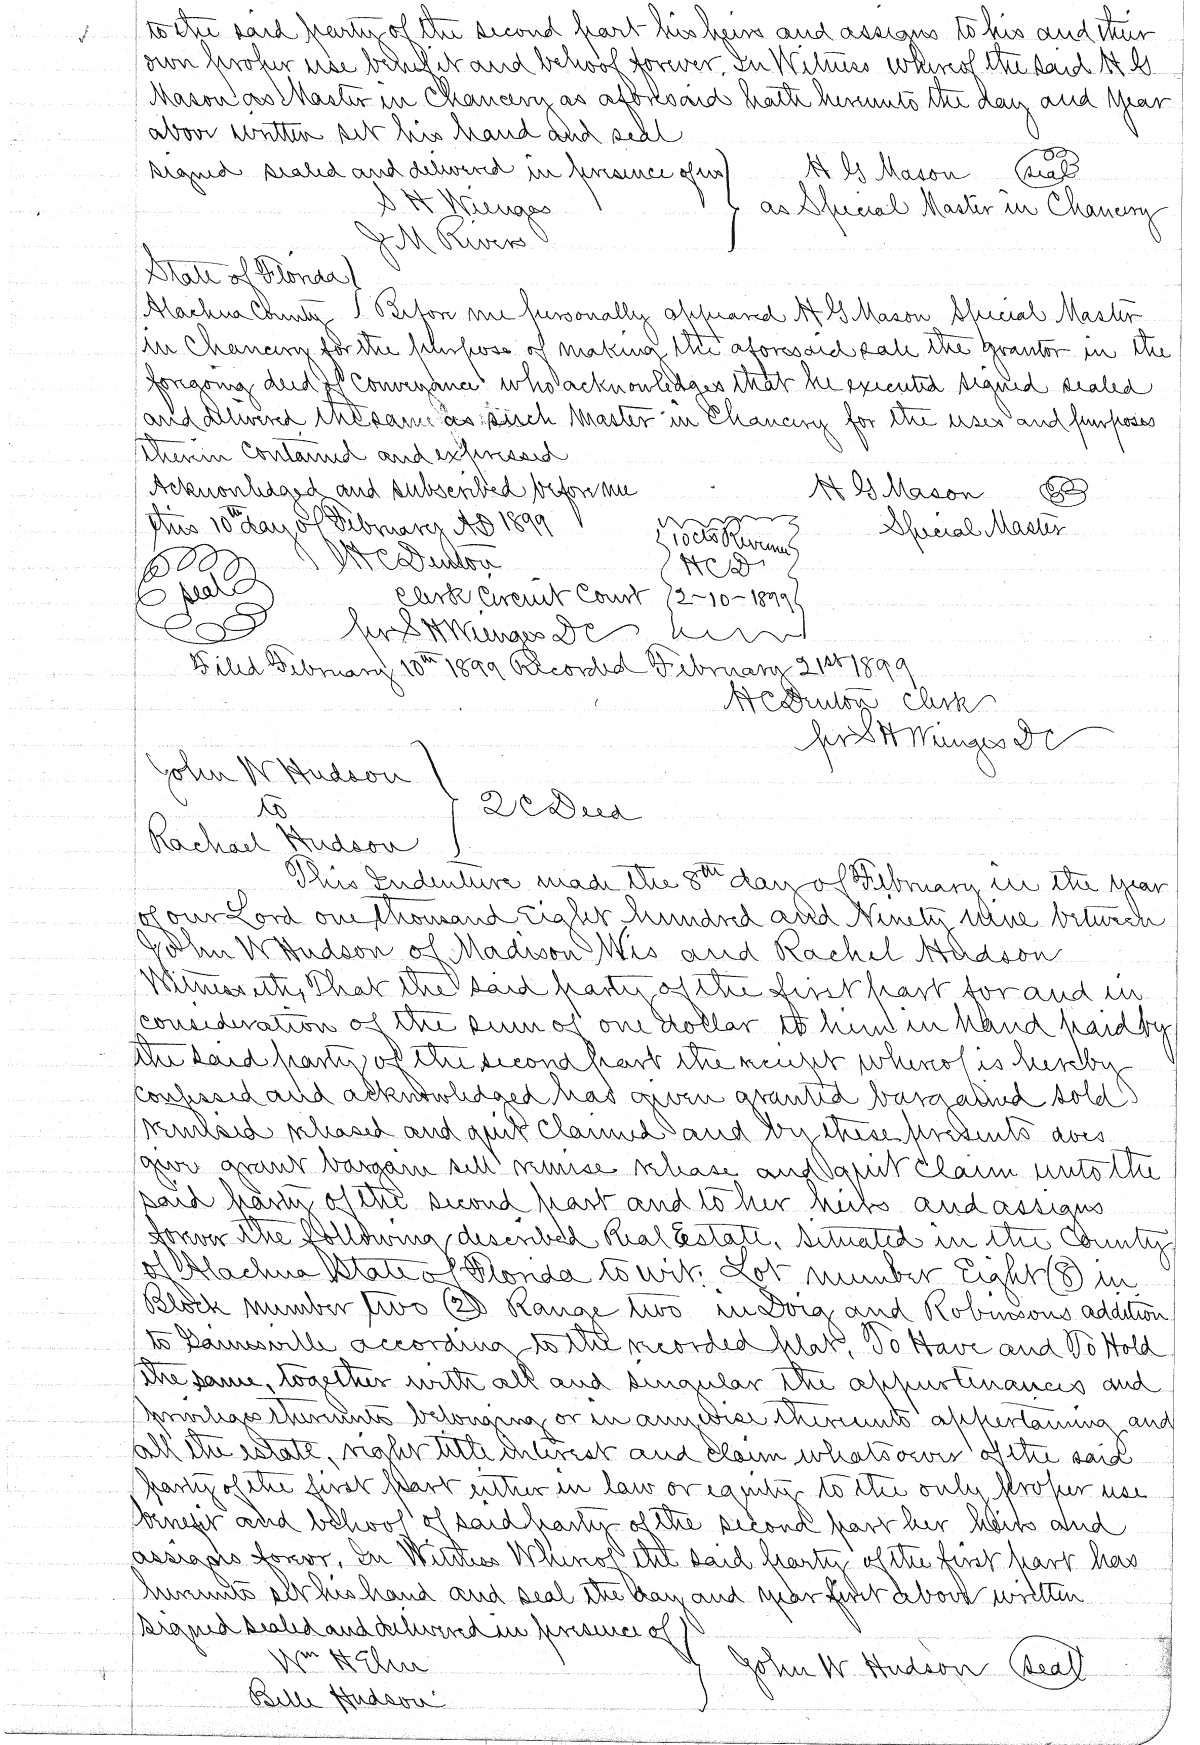 to the said party of the second part his heirs and assigns to his and their
own proper use benefit and behoof forever. In Witness whereof the said H G
Mason as Master in Chancery as aforesaid hath hereunto the day and year
above written set his hand and seal
signed sealed and delivered in presence of us H G Mason seal
S H Wienges as Special Master in Chancery
J M Rivers
State of Florida
Alachua County Before me personally appeared H G Mason Special Master
in Chancery for the purpose of making the aforesaid sale the grantor in the
foregoing deed of conveyance who acknowledges that he executed signed sealed
and delivered the same as such Master in Chancery for the uses and purposes
therein contained and expressed
Acknowledged and subscribed before me H G Mason
this 10th day of February AD 1899 10cts Revenue Special Master
seal H C Denton H C D
Clerk Circuit Court 2-10-1899
per S H Wienges D C
Filed February 10th 1899 Recorded February 21st 1899
H C Denton Clerk
per S H Wienges D C
John W Hudson
to 2 C Deed
Rachael Hudson
This Indenture made the 8th day of February in the year
of our Lord one thousand Eight hundred and Ninety nine between
John W Hudson of Madison Wis and Rachel Hudson
Witnesseth, That the said party of the first part for and in
consideration of the sum of one dollar to him in hand paid by
the said party of the second part the receipt whereof is hereby
confessed and acknowledged has given granted bargained sold
remised released and quit claimed and by these presents does
give grant bargain sell remise release and quit claim unto the
said party of the second part and to her heirs and assigns
forever the following described Real Estate, situated in the County
of Alachua State of Florida to wit: Lot number Eight (8) in
Block number two (2) Range two in Doig and Robinsons addition
to Gainesville according to the recorded plat. To Have and To Hold
the same, together with all and singular the appurtenances and
privileges thereunto belonging or in anywise thereunto appertaining and
all the estate, right title interest and claim whatsoever of the said
party of the first part either in law or equity to the only proper use
benefit and behoof of said party of the second part her heirs and
assigns forever. In Witness Whereof the said party of the first part has
hereunto set his hand and seal the day and year first above written
signed sealed and delivered in presence of
Wm H John W Hudson seal
Belle Hudson